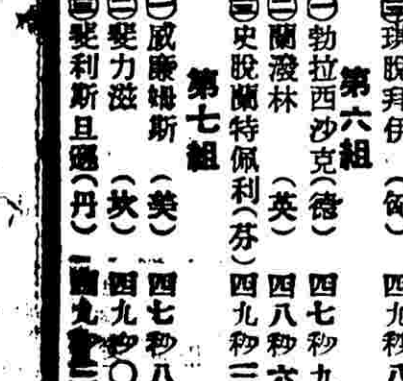 ㊂琪脫拜伊(匈)四九秒
第六組
㊀勃拉西沙克(德)四七秒九
㊁蘭潑林(英)四八秒六
㊂史脫蘭特佩利(芬)四九秒二
第七組
㊀威廉姆斯(美)四七秒八
㊁斐力滋(坎)四九秒〇
㊂斐利斯且(丹)四九秒